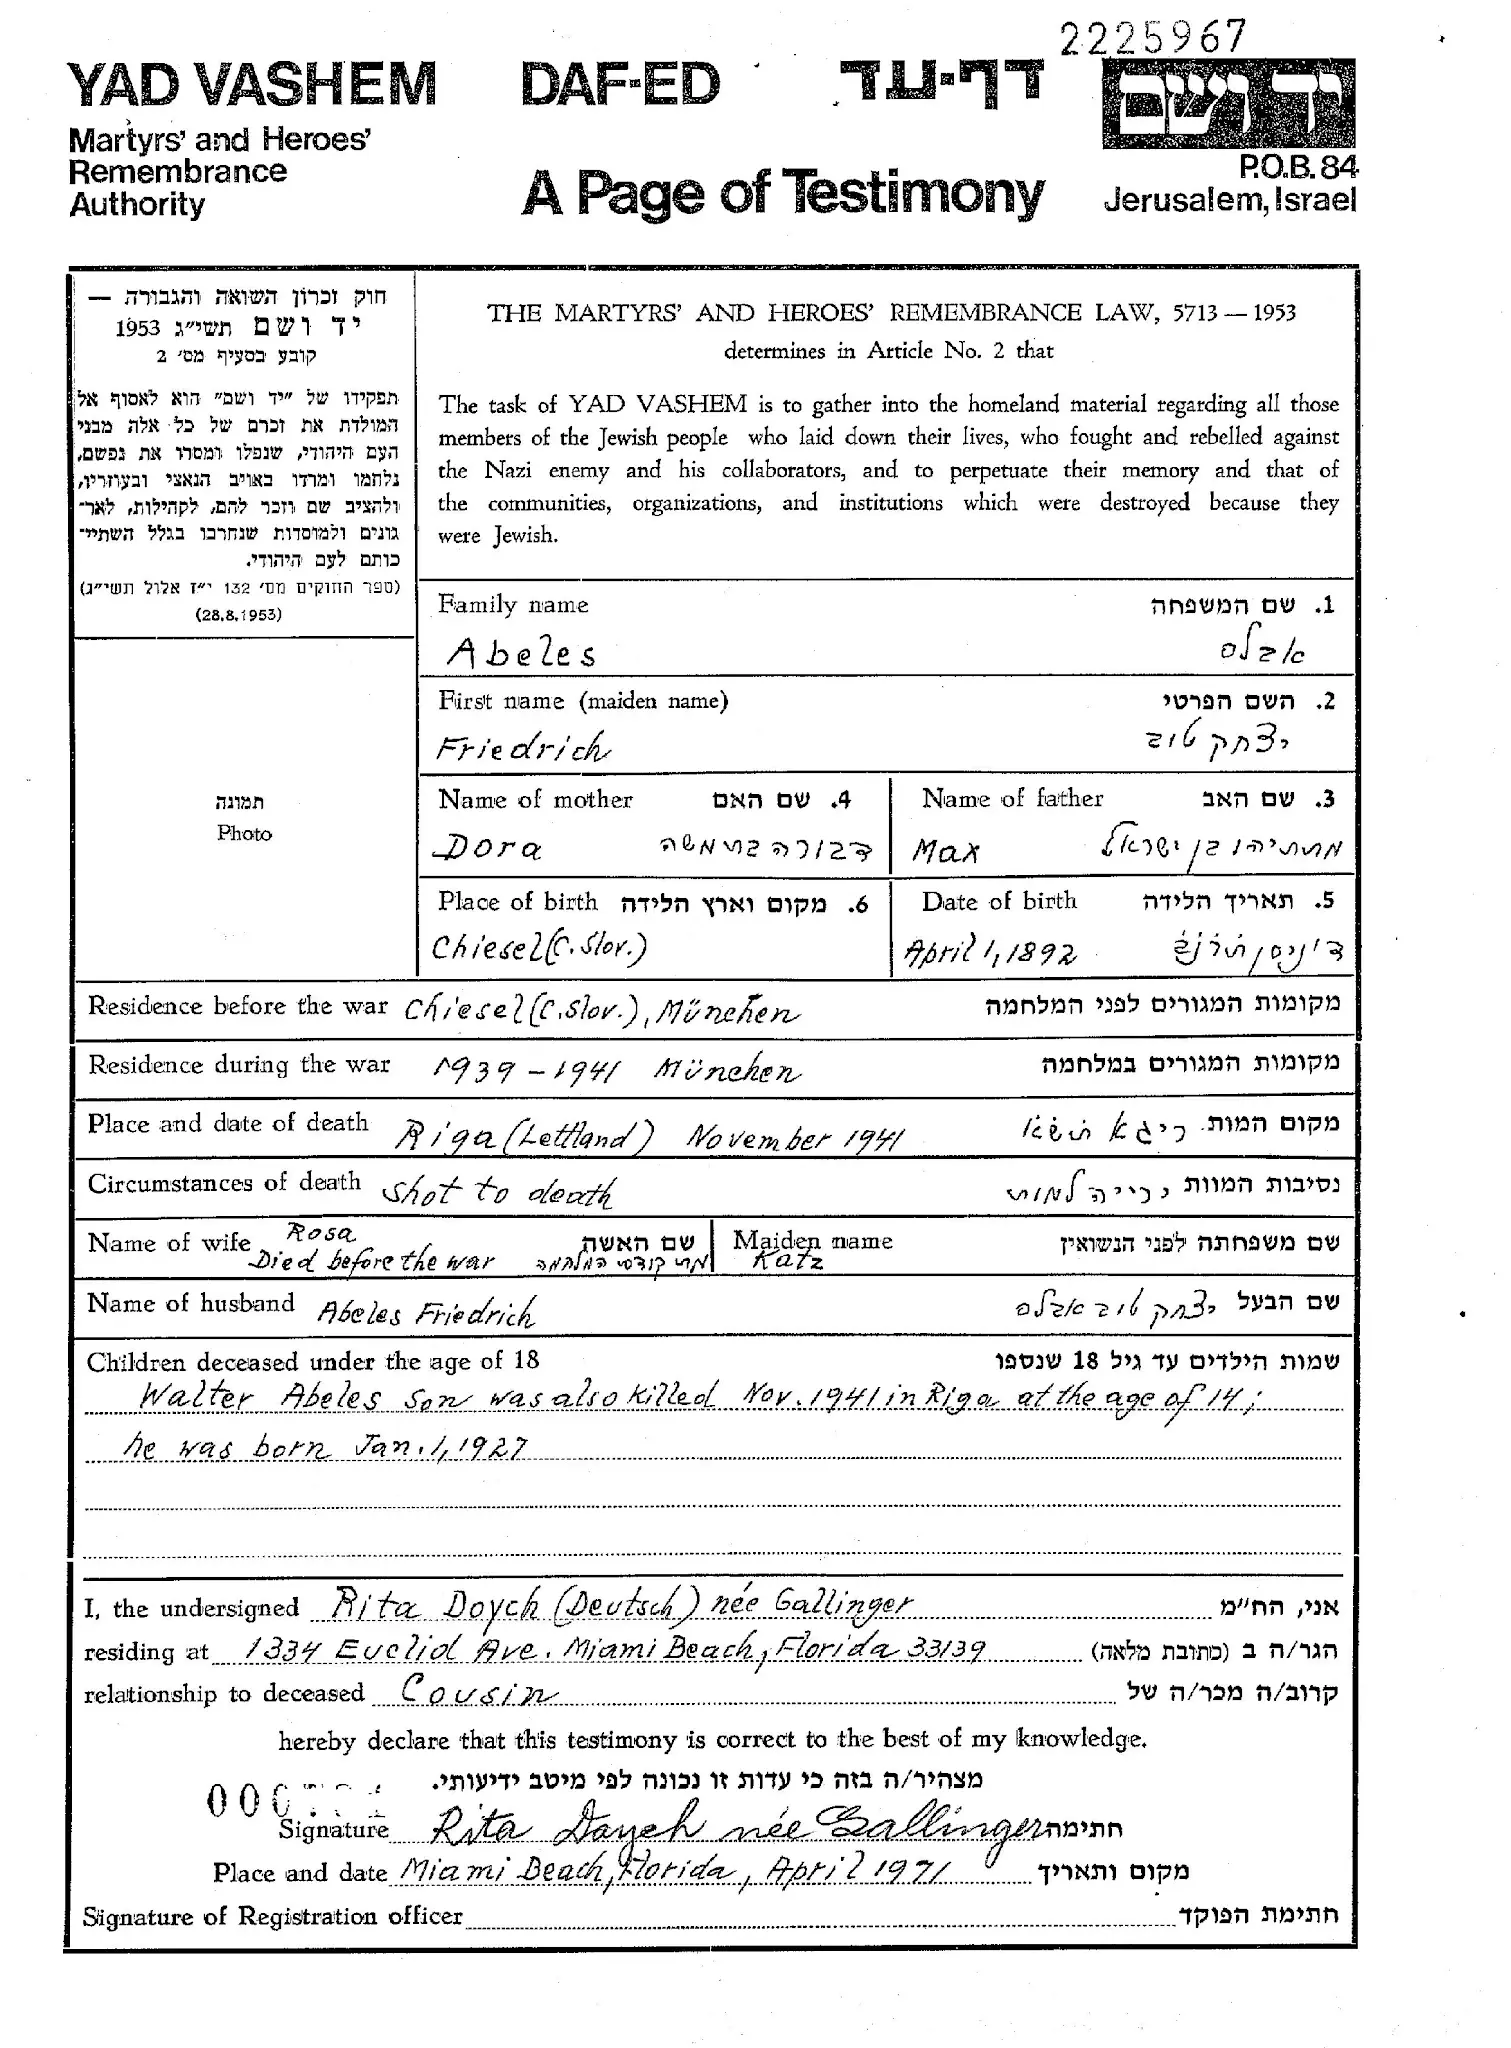 2225967
YAD VASHEM DAF-ED דף-עד יד ושם
Martyrs' and Heroes'
Remembrance
Authority
A Page of Testimony
P.O.B. 84
Jerusalem, Israel
חוק זכרון השואה והגבורה —
יד ושם תשי״ג 1953
קובע בסעיף מס׳ 2
תפקידו של ״יד ושם״ הוא לאסוף אל
המולדת את זכרם של כל אלה מבני
העם היהודי, שנפלו ומסרו את נפשם,
נלחמו ומרדו באויב הנאצי ובעוזריו,
ולהציב שם וזכר להם, לקהילות, לאר־
גונים ולמוסדות שנחרבו בגלל השתיי־
כותם לעם היהודי.
(ספר החוקים מס׳ 132 י״ז אלול תשי״ג)
(28.8.1953)
THE MARTYRS' AND HEROES' REMEMBRANCE LAW, 5713 — 1953
determines in Article No. 2 that
The task of YAD VASHEM is to gather into the homeland material regarding all those
members of the Jewish people who laid down their lives, who fought and rebelled against
the Nazi enemy and his collaborators, and to perpetuate their memory and that of
the communities, organizations, and institutions which were destroyed because they
were Jewish.
Family name 1. שם המשפחה
Abeles אבלס
First name (maiden name) 2. השם הפרטי
Friedrich יצחק טוב
תמונה
Photo
Name of mother 4. שם האם Name of father 3. שם האב
Dora דבורה בת משה Max מתתיהו בן ישראל
Place of birth 6. מקום וארץ הלידה Date of birth 5. תאריך הלידה
Chiesel (C. Slov.) April 1, 1892 ד׳ ניסן
Residence before the war Chiesel (C. Slov.), München מקומות המגורים לפני המלחמה
Residence during the war 1939 - 1941 München מקומות המגורים במלחמה
Place and date of death Riga (Lettland) November 1941 מקום המות ריגא
Circumstances of death Shot to death נסיבות המוות ירייה למות
Name of wife Rosa שם האשה Maiden name שם משפחתה לפני הנשואין
Died before the war Katz
Name of husband Abeles Friedrich שם הבעל יצחק טוב אבלס
Children deceased under the age of 18 שמות הילדים עד גיל 18 שנספו
Walter Abeles Son was also killed Nov. 1941 in Riga at the age of 14;
he was born Jan. 1, 1927
I, the undersigned Rita Doych (Deutsch) née Gallinger אני, הח״מ
residing at 1334 Euclid Ave. Miami Beach, Florida 33139 הגר/ה ב (כתובת מלאה)
relationship to deceased Cousin קרוב/ה מכר/ה של
hereby declare that this testimony is correct to the best of my knowledge.
מצהיר/ה בזה כי עדות זו נכונה לפי מיטב ידיעותי.
Signature Rita Doych née Gallinger חתימה
Place and date Miami Beach, Florida, April 1971 מקום ותאריך
Signature of Registration officer חתימת הפוקד